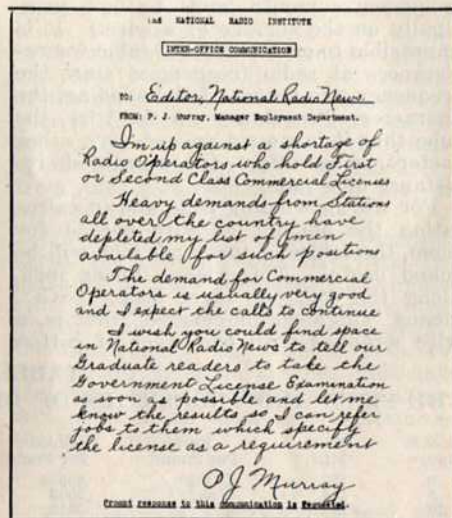 NATIONAL RADIO INSTITUTE
INTER-OFFICE COMMUNICATION
TO: Editor, National Radio News
FROM: P. J. Murray, Manager Employment Department.
Im up against a shortage of
Radio Operators who hold First
or Second Class Commercial Licenses
Heavy demands from Stations
all over the country have
depleted my list of men
available for such positions
The demand for Commercial
Operators is usually very good
and I expect the calls to continue
I wish you could find space
in National Radio News to tell our
Graduate readers to take the
Government License Examination
as soon as possible and let me
know the results so I can refer
jobs to them which specify
the license as a requirement
P J Murray
Prompt response to this communication is requested.